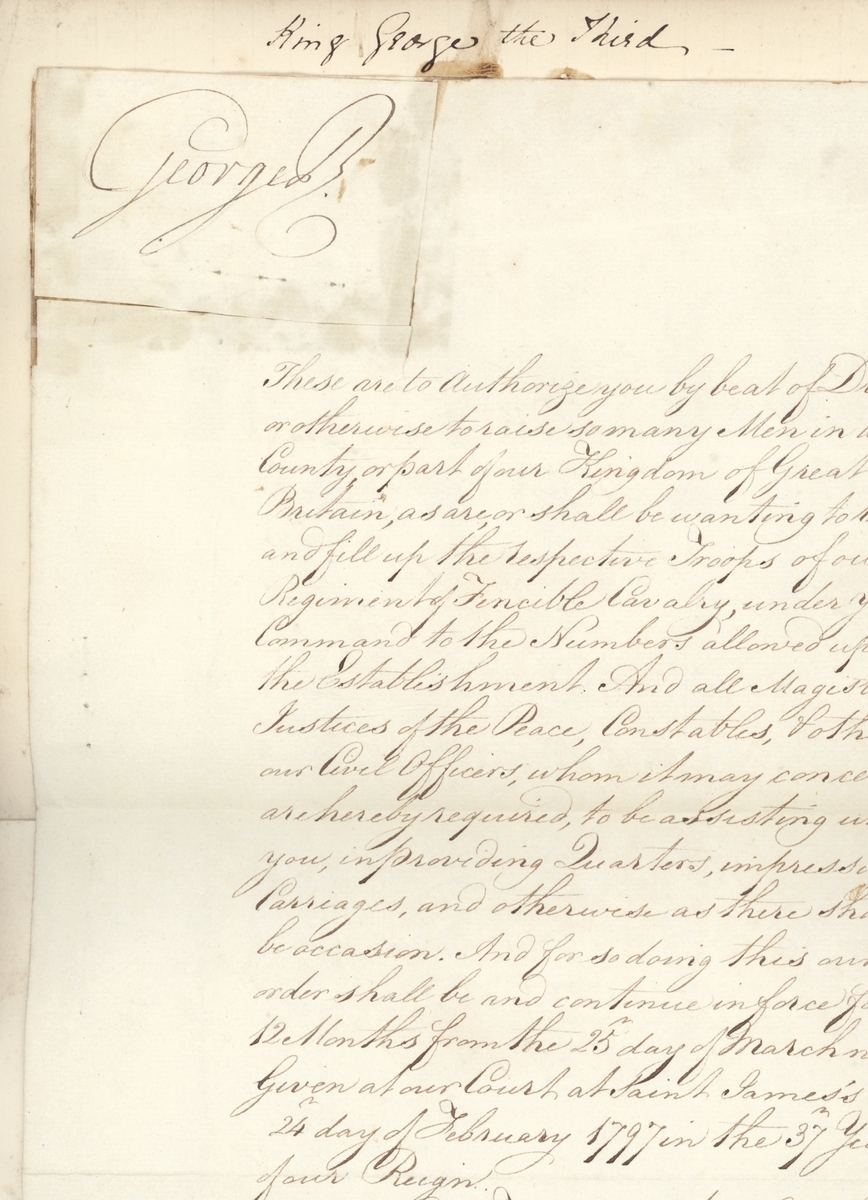 King George the Third -
George R.
These are to Authorize you by beat of
or otherwise to raise so many Men in
County, or part of our Kingdom of Great
Britain, as are, or shall be wanting to
and fill up the respective Troops of
Regiment of Fencible Cavalry, under
Command to the Numbers allowed
the Establishment. And all
Justices of the Peace, Constables, &
our Civil Officers, whom it may
are hereby required, to be assisting
you, in providing Quarters,
Carriages, and otherwise as there
be occasion. And for so doing this
order shall be and continue in force
12 Months from the 25th day of March
Given at our Court at Saint James's
24th day of February 1797 in the 37th
of our Reign.